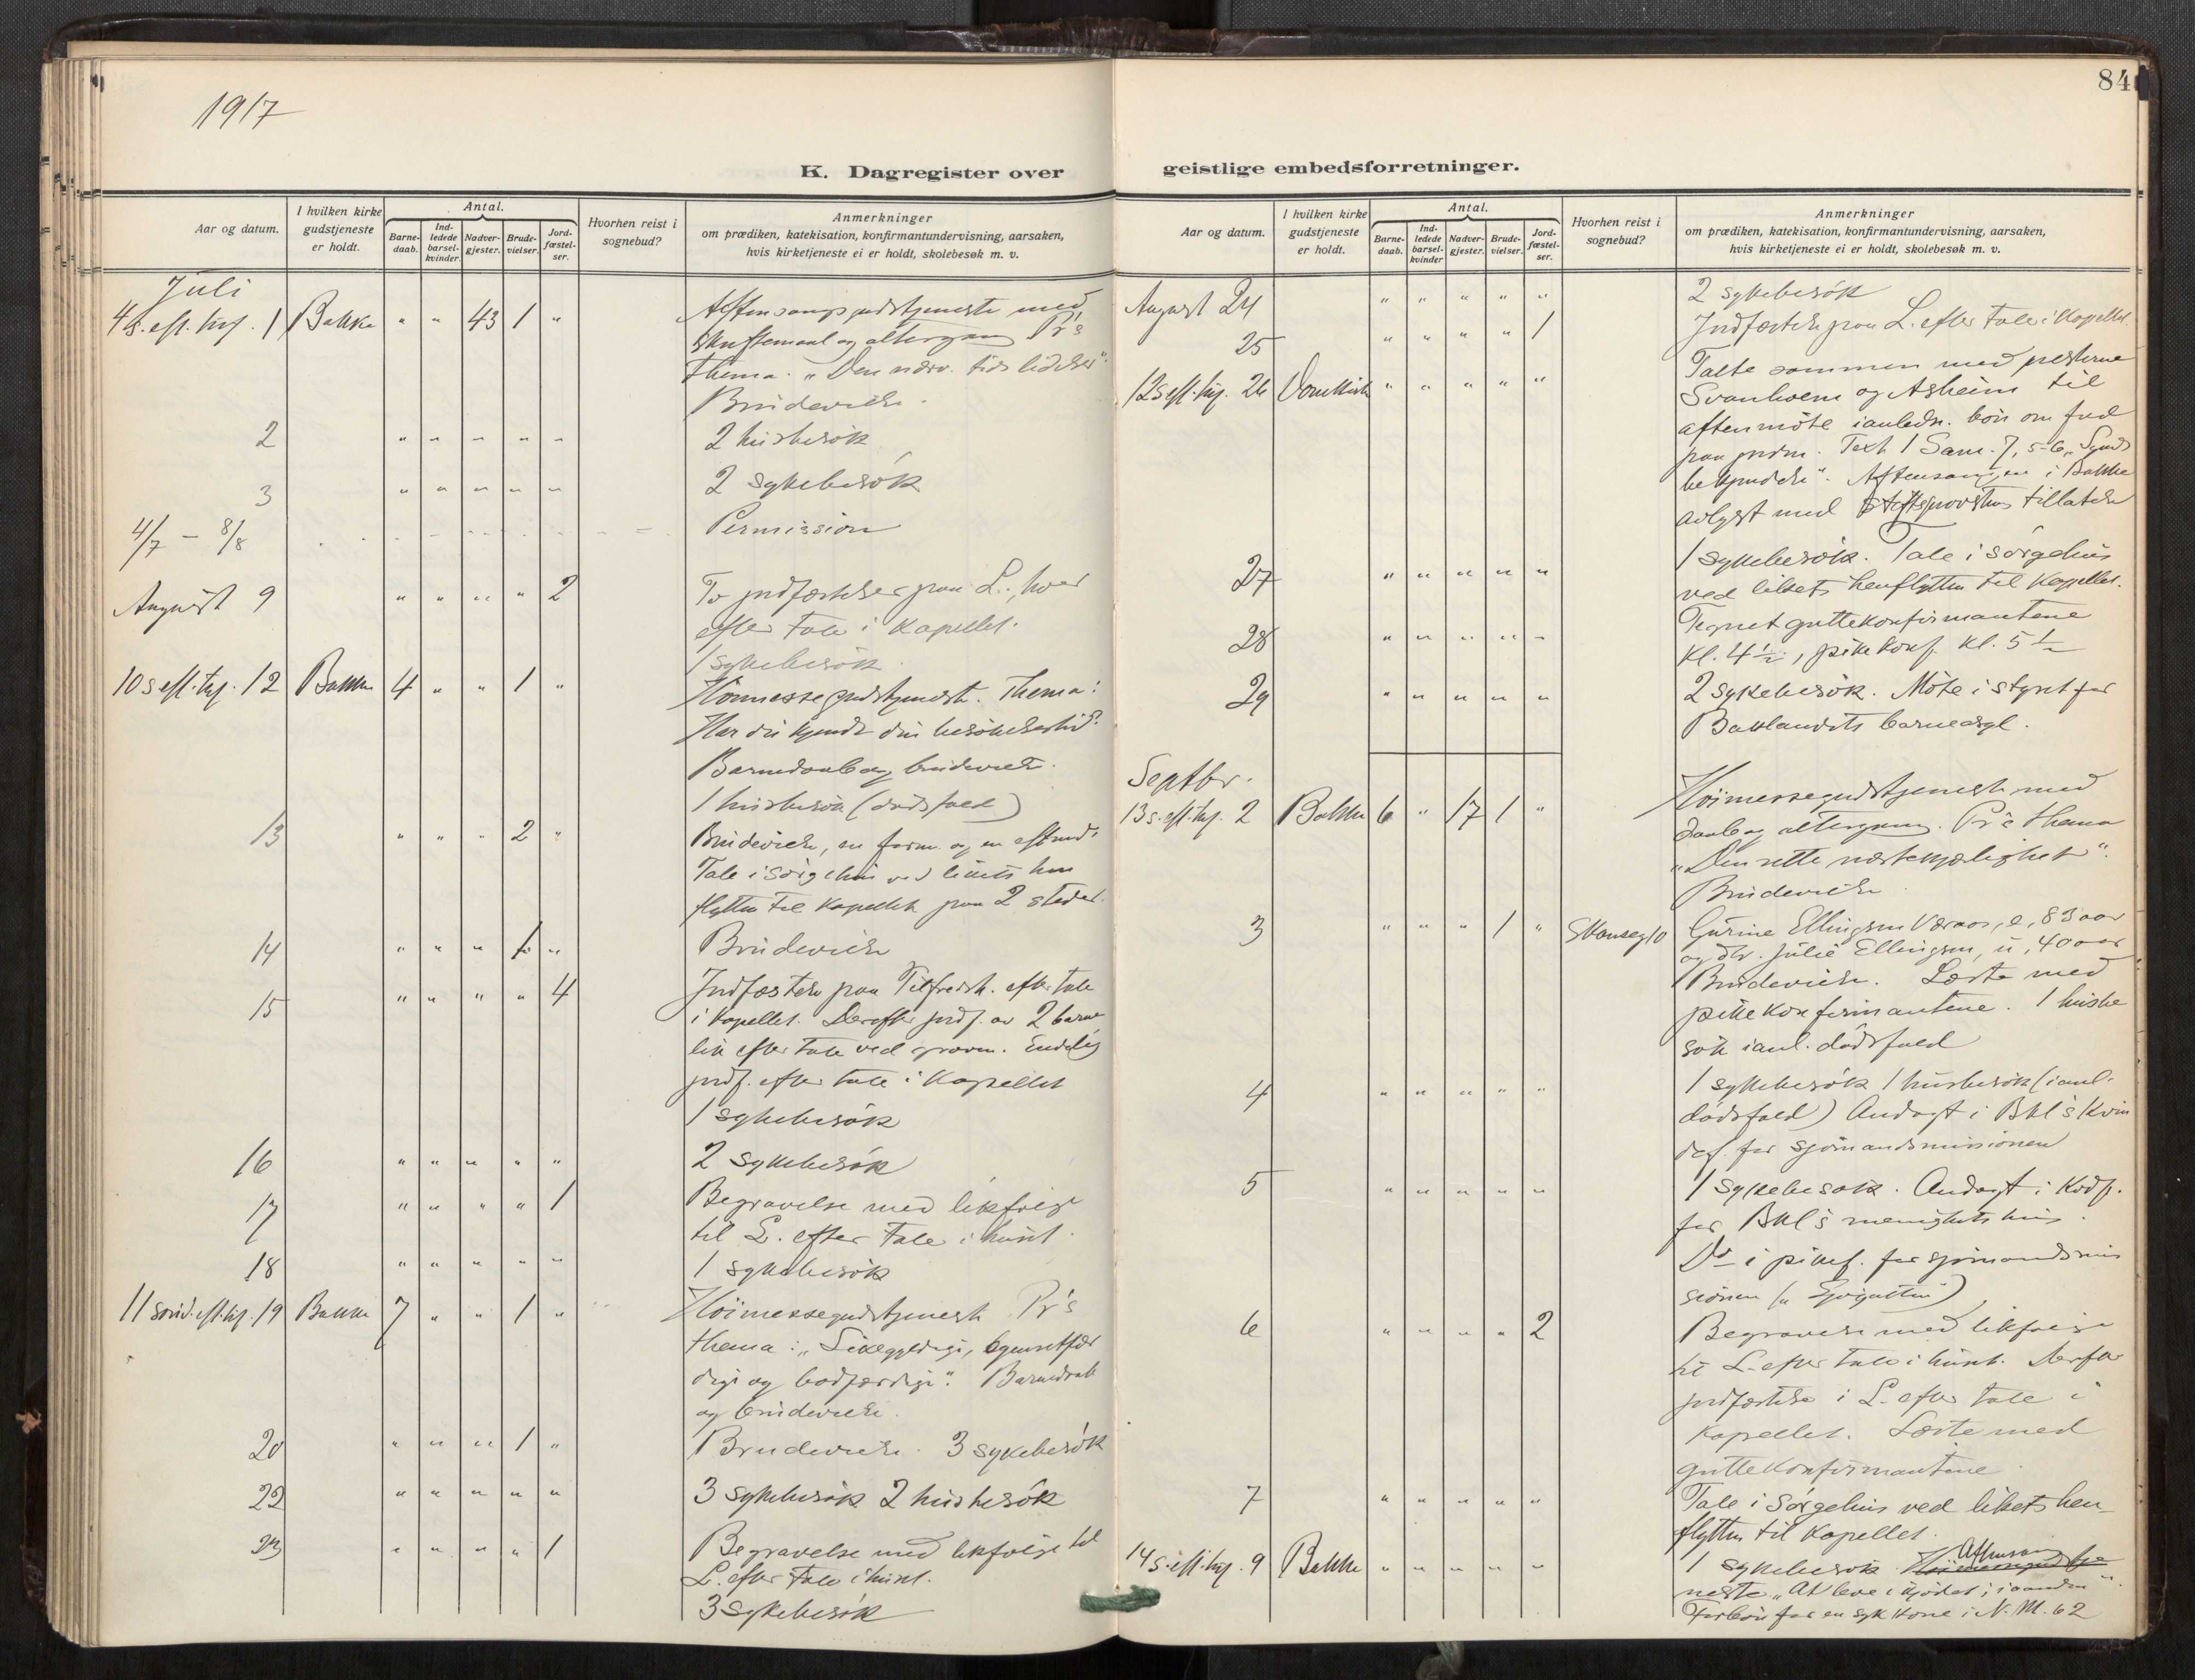 1917
84
K. Dagregister over geistlige embedsforretninger.
Aar og datum.
I hvilken kirke gudstjeneste er holdt.
Antal.
Barne-daab.
Ind-ledede barsel-kvinder.
Nadver-gjester.
Brude-vielser.
Jord-fæstel-ser.
Hvorhen reist i sognebud?
Anmerkninger
om prædiken, katekisation, konfirmantundervisning, aarsaken,
hvis kirketjeneste ei er holdt, skolebesøk m. v.
Juli
4 s. eft. trf. 1 Bakke " " 43 1 " Aftensangsgudstjeneste med
skriftemaal og altergang Pr's
Thema: "Den nærv. tids lidelser".
Brudevielse.
2 " " " " " 2 husbesök
3 " " " " " 2 sykebesök
4/7 – 8/8 Permission
August 9 " " " " 2 To jordfæstelser paa L., hver
efter tale i kapellet.
1 sykebesök
10 s eft. trf. 12 Bakke 4 " " 1 " Höimessegudstjeneste. Thema:
Har du kjendt din besökelsestid?
Barnedaab og brudevielse.
1 husbesök (dödsfald)
13 " " " 2 " Brudevielse, en form. og en efterm.
Tale i sörgehus ved likets hen
flytten til kapellet paa 2 steder.
14 " " " 1 " Brudevielse
15 " " " " 4 Jordfæstelse paa Tilfredsh. efter tale
i kapellet. Derefter jordf. av 2 barne
lik efter tale ved graven. Endelig
jordf. efter tale i kapellet
1 sykebesök
16 " " " " " 2 sykebesök
17 " " " " 1 Begravelse med likfølge
til L. efter tale i huset.
18 " " " " " 1 sykebesök
11 sönd. eft. trf. 19 Bakke 7 " " 1 " Höimessegudstjeneste Pr's
thema: "Likegyldige, egenretfær
dige og bodfærdige". Barnedaab
og brudevielse.
20 " " " 1 " Brudevielse. 3 sykebesök
22 " " " " " 3 sykebesök 2 husbesök
23 " " " " 1 Begravelse med likfølge til
L. efter tale i huset.
3 sykebesök
Aar og datum.
I hvilken kirke gudstjeneste er holdt.
Antal.
Barne-daab.
Ind-ledede barsel-kvinder
Nadver-gjester.
Brude-vielser.
Jord-fæstel-ser.
Hvorhen reist i sognebud?
Anmerkninger
om prædiken, katekisation, konfirmantundervisning, aarsaken,
hvis kirketjeneste ei er holdt, skolebesøk m. v.
August 24 " " " " " 2 sykebesök
25 " " " " 1 Jordfæstelse paa L. efter tale i kapellet.
12 s eft. trf. 26 Domkirke " " " " " Talte sammen med presterne
Svanholm og Asheim til
aftenmöte i anledn. bön om fred
paa jorden. Text 1 Sam. 7, 5-6, "Synds
bekjendelse". Aftensangen i Bakke
avlyst med stiftsprovstens tillatelse
27 " " " " " 1 sykebesök. Tale i sörgehus
ved likets henflytten til kapellet.
28 " " " " " Tegnet guttekonfirmantene
kl. 4 ½, pikekonf. kl. 5 ½
29 " " " " " 2 sykebesök. Möte i styret for
Baklandets barneasyl.
Septbr.
13 s. eft. trf. 2 Bakke 6 " 17 1 " Höimessegudstjeneste med
daab og altergang. Pr's thema
"Den rette næstekjærlighet".
Brudevielse.
3 " " " 1 " Skanseg 10 Gurine Ellingsen Væraas, e, 83 aar
og dtr. Julie Ellingsen, u, 40 aar
1 Brudevielse. Læste med
pikekonfirmantene. 1 husbe
sök i anl. dödsfald
4 " " " " " 1 sykebesök 1 husbesök (i anl.
dödsfald) Andagt i Bkl's kvin
def. for sjömandsmissionen
5 " " " " " 1 sykebesök. Andagt i kvdf.
for Bkl's menighets hus.
Do i pikef. for sjömandsmis
sionen
6 " " " " 2 Begravelse med likfølge
til L. efter tale i huset. Derefter
jordfæstelse i L. efter tale i
kapellet. Læste med
guttekonfirmantene.
7 " " " " " Tale i sörgehus ved likets hen-
flytten til kapellet.
14 s. eft. trf. 9 Bakke " " " " " 1 sykebesök. Höimessegudstje Aftensang
neste "At leve i kjödet, i aanden".
Forbön for en syk kone i N. M. 62